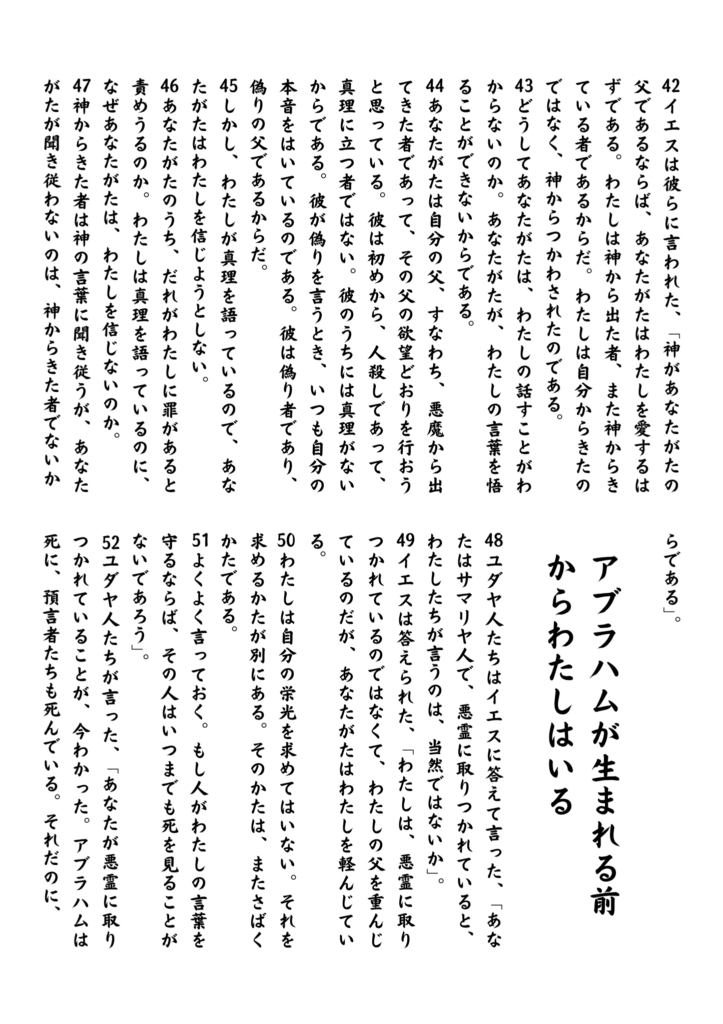 42イエスは彼らに言われた、「神があなたがたの
父であるならば、あなたがたはわたしを愛するは
ずである。わたしは神から出た者、また神からき
ている者であるからだ。わたしは自分からきたの
ではなく、神からつかわされたのである。
43どうしてあなたがたは、わたしの話すことがわ
からないのか。あなたがたが、わたしの言葉を悟
ることができないからである。
44あなたがたは自分の父、すなわち、悪魔から出
てきた者であって、その父の欲望どおりを行おう
と思っている。彼は初めから、人殺しであって、
真理に立つ者ではない。彼のうちには真理がない
からである。彼が偽りを言うとき、いつも自分の
本音をはいているのである。彼は偽り者であり、
偽りの父であるからだ。
45しかし、わたしが真理を語っているので、あな
たがたはわたしを信じようとしない。
46あなたがたのうち、だれがわたしに罪があると
責めうるのか。わたしは真理を語っているのに、
なぜあなたがたは、わたしを信じないのか。
47神からきた者は神の言葉に聞き従うが、あなた
がたが聞き従わないのは、神からきた者でないか
らである」。
アブラハムが生まれる前
からわたしはいる
48ユダヤ人たちはイエスに答えて言った、「あな
たはサマリヤ人で、悪霊に取りつかれていると、
わたしたちが言うのは、当然ではないか」。
49イエスは答えられた、「わたしは、悪霊に取り
つかれているのではなくて、わたしの父を重んじ
ているのだが、あなたがたはわたしを軽んじてい
る。
50わたしは自分の栄光を求めてはいない。それを
求めるかたが別にある。そのかたは、またさばく
かたである。
51よくよく言っておく。もし人がわたしの言葉を
守るならば、その人はいつまでも死を見ることが
ないであろう」。
52ユダヤ人たちが言った、「あなたが悪霊に取り
つかれていることが、今わかった。アブラハムは
死に、預言者たちも死んでいる。それだのに、